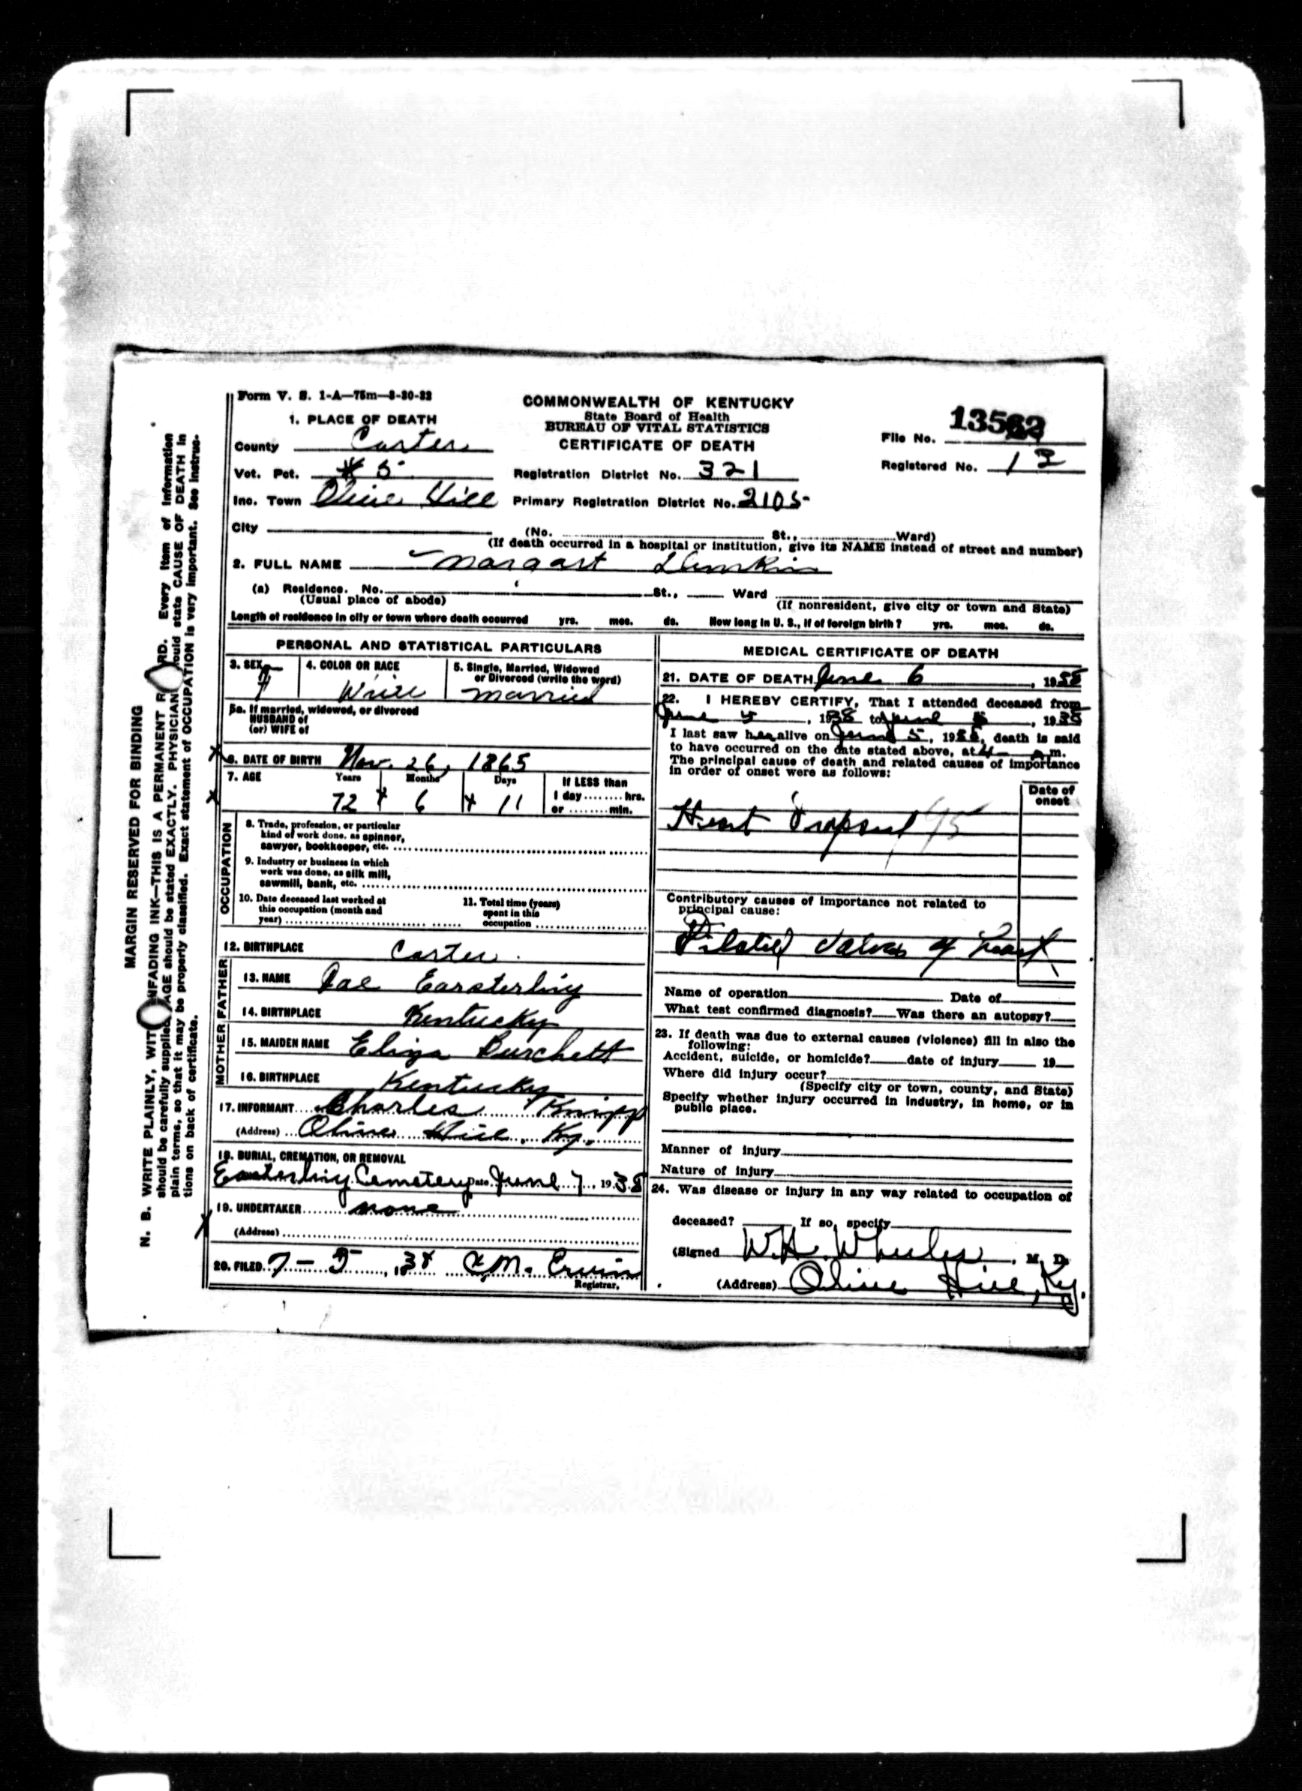 Form V. S. 1-A—75m—8-30-32
COMMONWEALTH OF KENTUCKY
State Board of Health
BUREAU OF VITAL STATISTICS
CERTIFICATE OF DEATH
File No. 
Registered No.
1. PLACE OF DEATH
County Carter
Vot. Pct. # 5
Inc. Town Olive Hill
City
Registration District No. 321
Primary Registration District No. 2105
(No. St., Ward)
(If death occurred in a hospital or institution, give its NAME instead of street and number)
2. FULL NAME Margart
(a) Residence. No. St., Ward
(Usual place of abode) (If nonresident, give city or town and State)
Length of residence in city or town where death occurred yrs. mos. ds. How long in U. S., if of foreign birth? yrs. mos. ds.
PERSONAL AND STATISTICAL PARTICULARS
3. SEX F
4. COLOR OR RACE
5. Single, Married, Widowed
or Divorced (write the word)
Married
5a. If married, widowed, or divorced
HUSBAND of
(or) WIFE of
6. DATE OF BIRTH Nov. 26, 1865
7. AGE Years Months Days If LESS than
72 6 11 1 day........hrs.
or ........min.
OCCUPATION
8. Trade, profession, or particular
kind of work done, as spinner,
sawyer, bookkeeper, etc.
9. Industry or business in which
work was done, as silk mill,
sawmill, bank, etc.
10. Date deceased last worked at
this occupation (month and
year)
11. Total time (years)
spent in this
occupation
12. BIRTHPLACE Carter
FATHER
13. NAME Earsterling
14. BIRTHPLACE Kentucky
MOTHER
15. MAIDEN NAME Eliza Burchett
16. BIRTHPLACE Kentucky
17. INFORMANT Charles Knipp
(Address) Olive Hill, Ky.
18. BURIAL, CREMATION, OR REMOVAL
Easterling Cemetery Date June 7, 1938
19. UNDERTAKER none
(Address)
20. FILED 7-5, M. Erwin
Registrar.
MEDICAL CERTIFICATE OF DEATH
21. DATE OF DEATH June 6, 1938
22. I HEREBY CERTIFY, That I attended deceased from
June , 1938 to June , 1938
I last saw her alive on June 5, 1938, death is said
to have occurred on the date stated above, at 4 m.
The principal cause of death and related causes of importance
in order of onset were as follows:
Date of
onset
Heart 95
Contributory causes of importance not related to
principal cause:
Dilated valves of heart
Name of operation Date of
What test confirmed diagnosis? Was there an autopsy?
23. If death was due to external causes (violence) fill in also the
following:
Accident, suicide, or homicide? date of injury 19
Where did injury occur?
(Specify city or town, county, and State)
Specify whether injury occurred in industry, in home, or in
public place.
Manner of injury
Nature of injury
24. Was disease or injury in any way related to occupation of
deceased? If so, specify
(Signed W. H. M. D.
(Address) Olive Hill, Ky.
MARGIN RESERVED FOR BINDING
N. B. WRITE PLAINLY, WITH UNFADING INK—THIS IS A PERMANENT RECORD. Every item of information
should be carefully supplied. AGE should be stated EXACTLY. PHYSICIANS should state CAUSE OF DEATH in
plain terms, so that it may be properly classified. Exact statement of OCCUPATION is very important. See instruc-
tions on back of certificate.